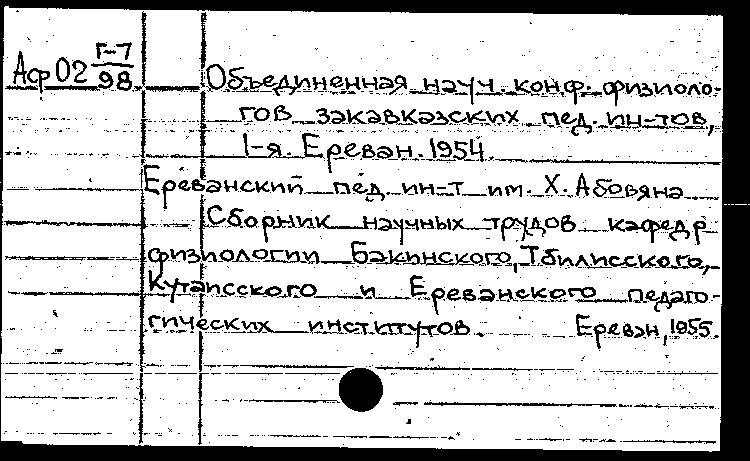 Аф02 Г-7/98
Объединенная науч. конф. физиоло-
гов закавказских пед. ин-тов,
1-я. Ереван. 1954.
Ереванский пед. ин-т им. Х. Абовяна
Сборник научных трудов кафедр
физиологии Бакинского, Тбилисского,
Кутаисского и Ереванского педаго-
гических институтов. Ереван, 1955.